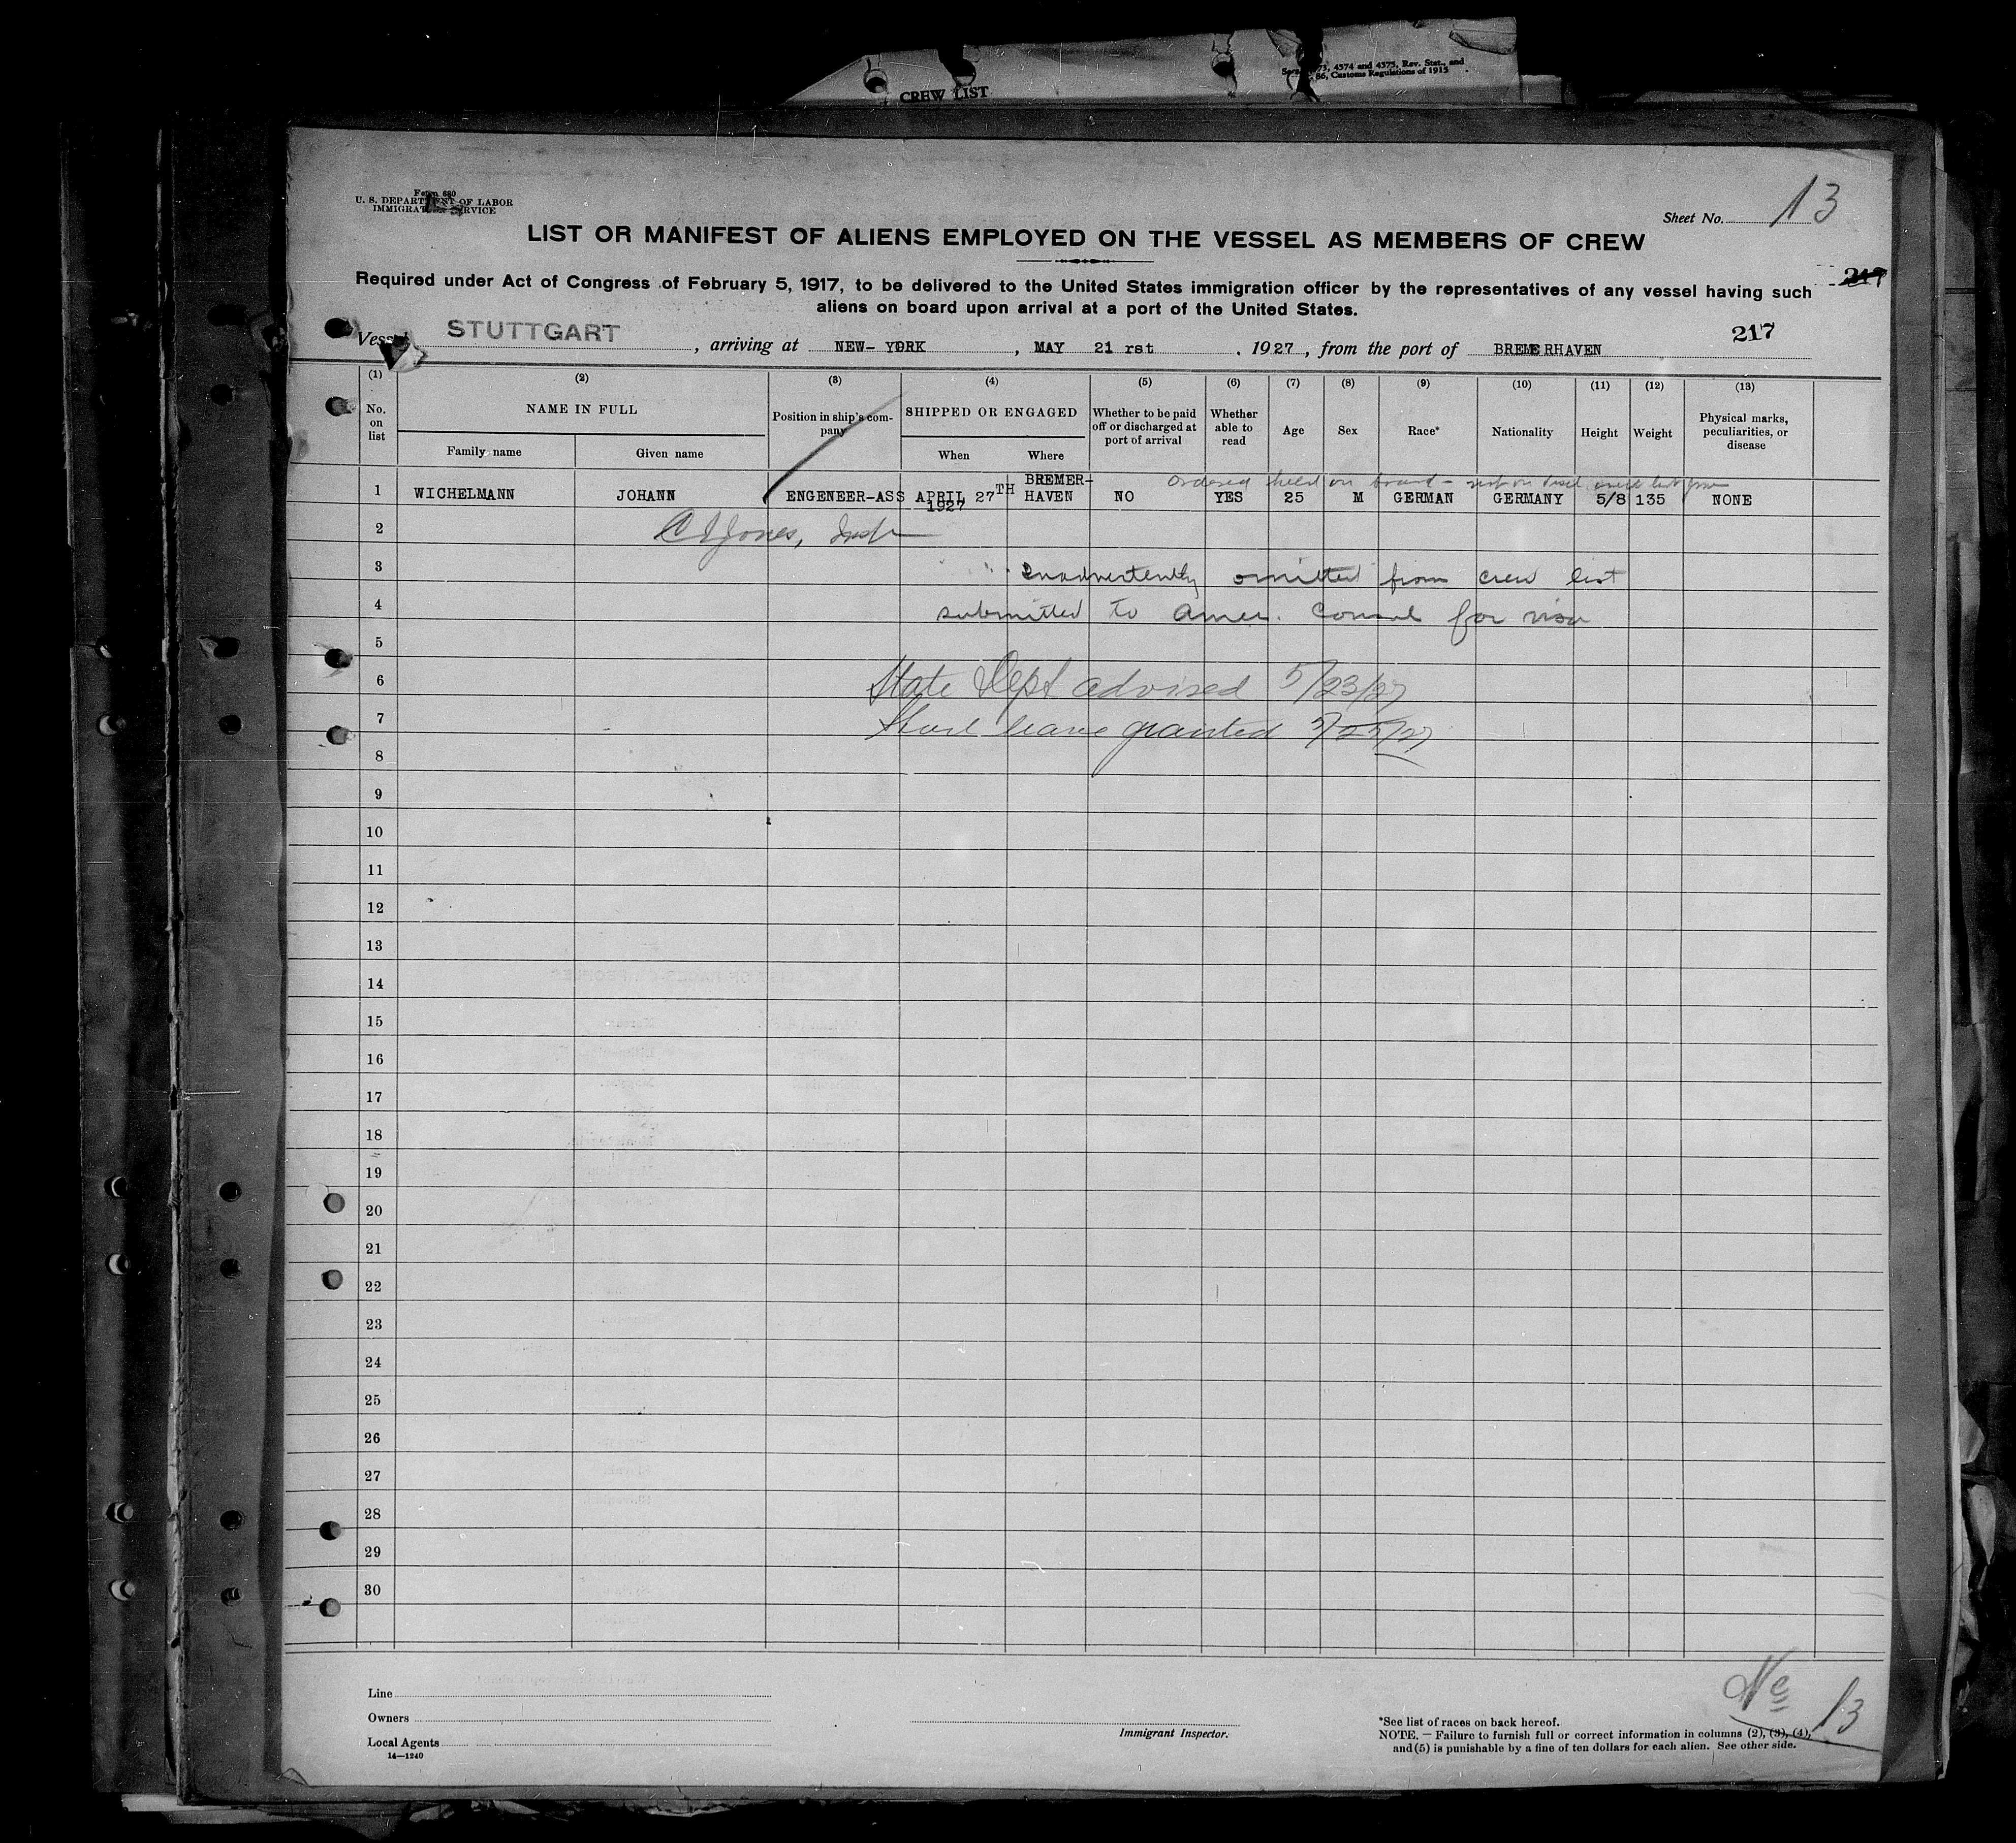 CREW LIST
4374 and 4375, Rev. Stat., and
86, Customs Regulations of 1915
Form 680
U. S. DEPARTMENT OF LABOR
IMMIGRATION SERVICE
Sheet No. 13
LIST OR MANIFEST OF ALIENS EMPLOYED ON THE VESSEL AS MEMBERS OF CREW
Required under Act of Congress of February 5, 1917, to be delivered to the United States immigration officer by the representatives of any vessel having such
aliens on board upon arrival at a port of the United States.
217
217
Vessel STUTTGART, arriving at NEW-YORK, MAY 21 rst, 1927, from the port of BREMERHAVEN
(1) (2) (3) (4) (5) (6) (7) (8) (9) (10) (11) (12) (13)
No. on list
NAME IN FULL
Family name
Given name
Position in ship's company
SHIPPED OR ENGAGED
When
Where
Whether to be paid off or discharged at port of arrival
Whether able to read
Age
Sex
Race*
Nationality
Height
Weight
Physical marks, peculiarities, or disease
Ordered held on board - not on
1 WICHELMANN JOHANN ENGENEER-ASS APRIL 27TH 1927 BREMER-HAVEN NO YES 25 M GERMAN GERMANY 5/8 135 NONE
2 Jones, Insp
3 Inadvertently omitted from crew list
4 submitted to Amer. Consul for visa
5
6 State Dept advised 5/23/27
7 Shore leave granted 5/25/27
8
9
10
11
12
13
14
15
16
17
18
19
20
21
22
23
24
25
26
27
28
29
30
Line
Owners
Local Agents
14—1240
Immigrant Inspector.
*See list of races on back hereof.
NOTE. — Failure to furnish full or correct information in columns (2), (3), (4),
and (5) is punishable by a fine of ten dollars for each alien. See other side.
No 13